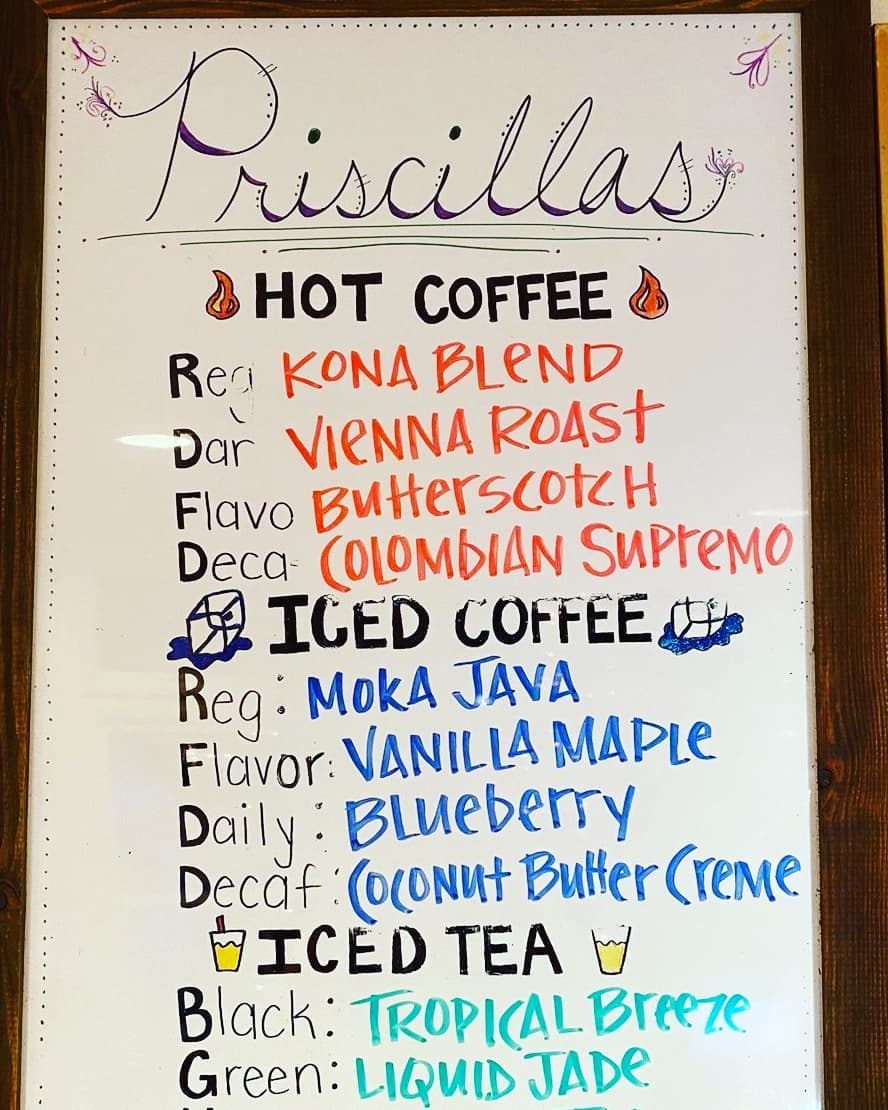 Priscillas
HOT COFFEE
Reg KONA BLEND
Dar VIENNA ROAST
Flavo BUTTERSCOTCH
Deca COLOMBIAN SUPREMO
ICED COFFEE
Reg: MOKA JAVA
Flavor: VANILLA MAPLE
Daily: BLUEBERRY
Decaf: COCONUT BUTTER CREME
ICED TEA
Black: TROPICAL BREEZE
Green: LIQUID JADE